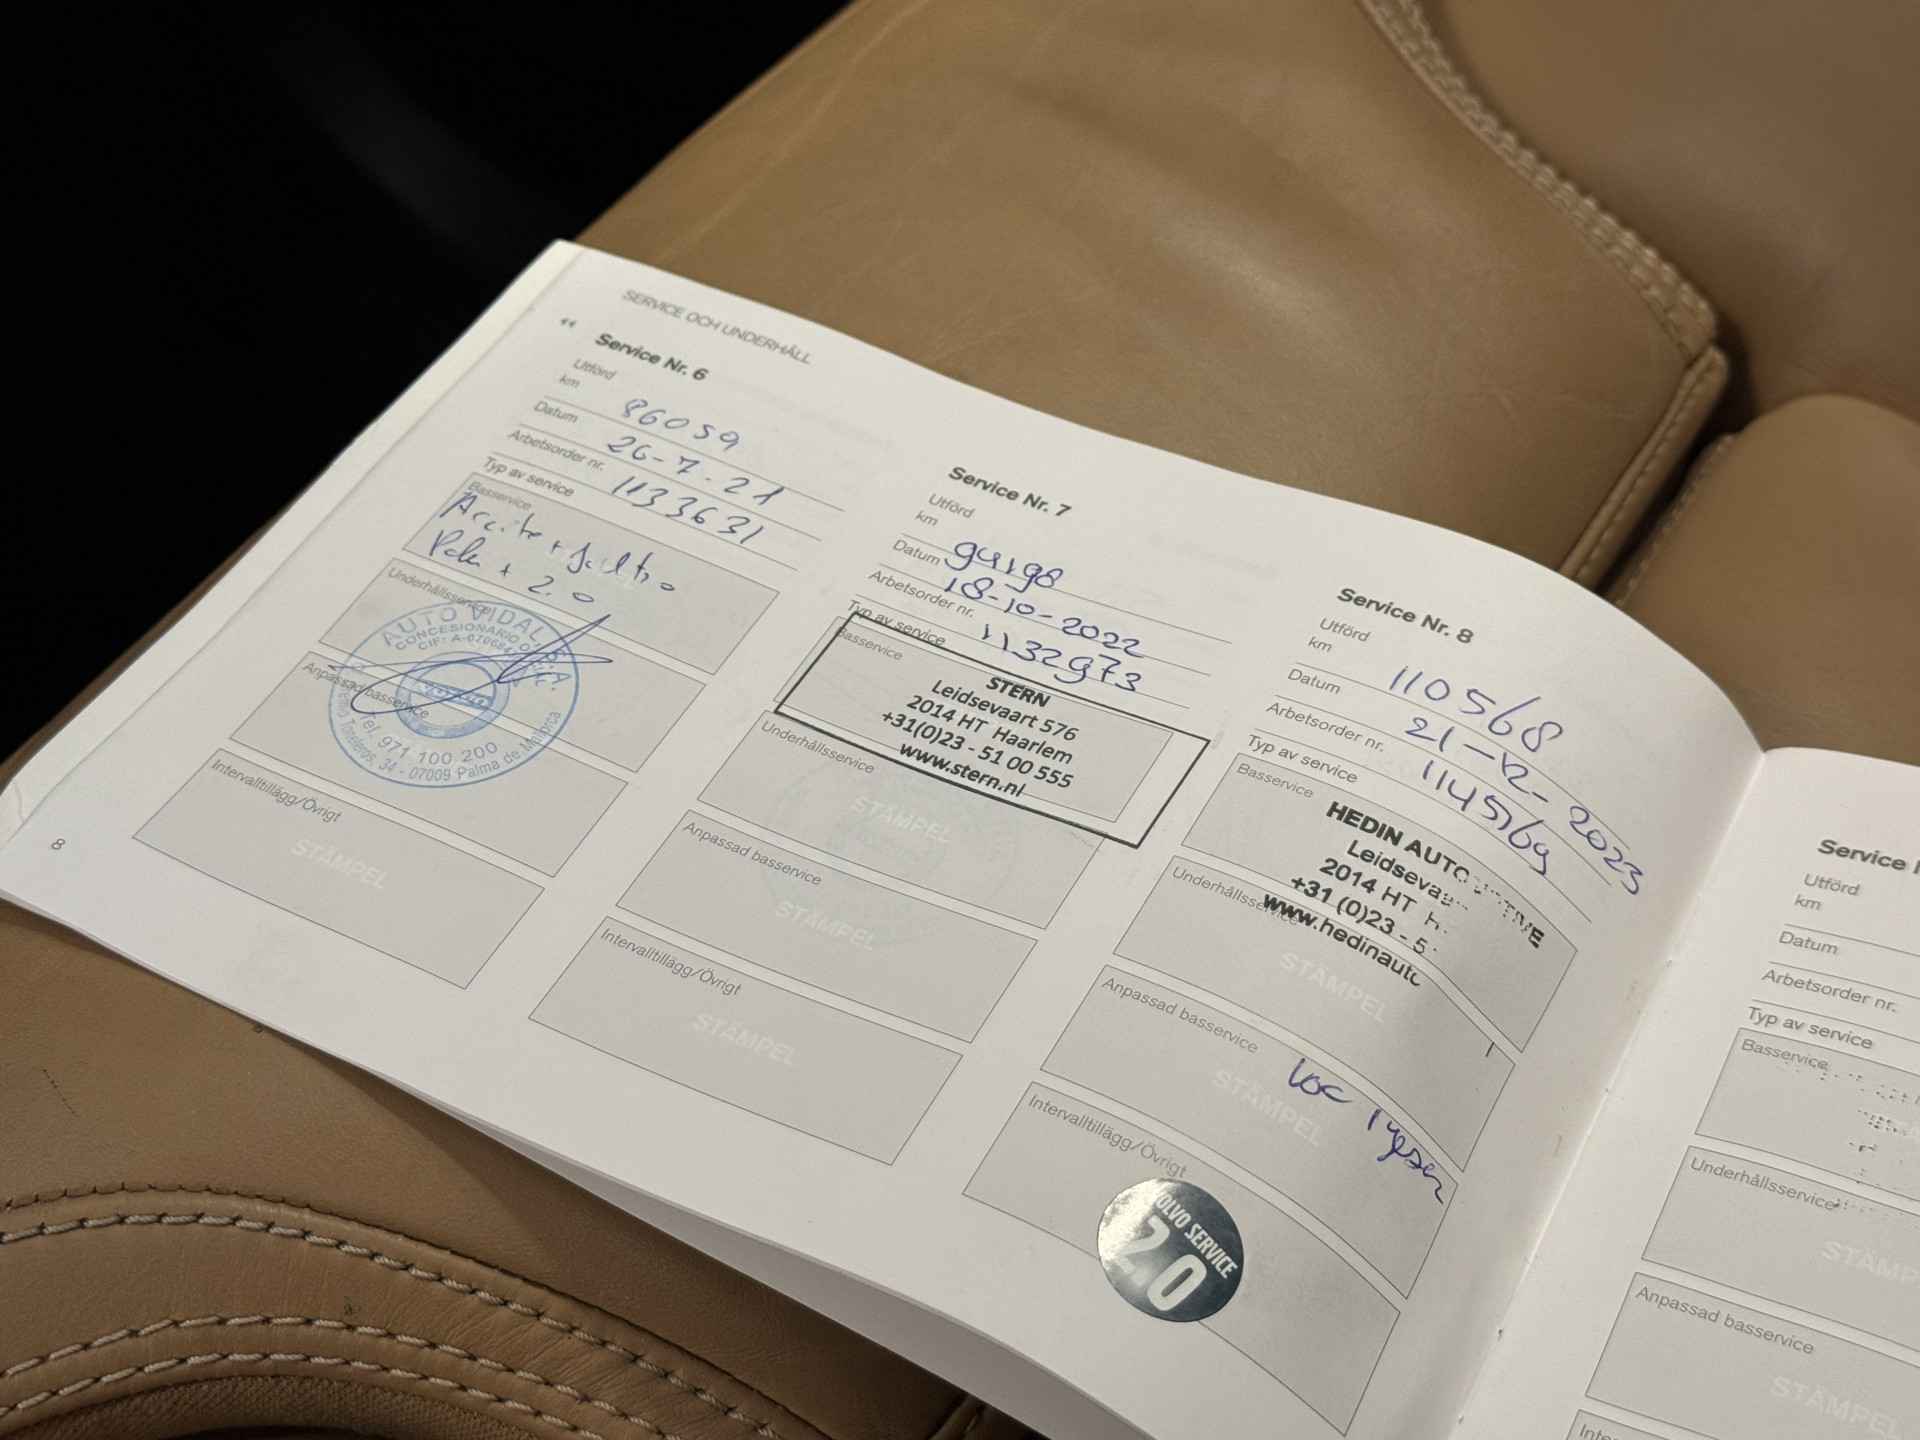 SERVICE OCH UNDERHÅLL
"
Service Nr. 6
Utförd
km 86059
Datum 26-7-21
Arbetsorder nr. 1133631
Typ av service
Basservice
Aceite + filtro
Polen + 2.0
Underhållsservice
AUTO VIDAL
CONCESIONARIO
CIF: A-07068
Anpassad basservice
Tel. 971 100 200
34 - 07009 Palma de Mallorca
Intervalltillägg/Övrigt
STÄMPEL
8
Service Nr. 7
Utförd
km 94198
Datum 18-10-2022
Arbetsorder nr. 1132973
Typ av service
Basservice
STERN
Leidsevaart 576
2014 HT Haarlem
+31(0)23 - 51 00 555
www.stern.nl
Underhållsservice
STÄMPEL
Anpassad basservice
STÄMPEL
Intervalltillägg/Övrigt
STÄMPEL
Service Nr. 8
Utförd
km 110568
Datum 21-12-2023
Arbetsorder nr. 1145769
Typ av service
Basservice
HEDIN AUTO
Leidseva
2014 HT H
+31 (0)23 - 5
www.hedinauto
Underhållsservice
STÄMPEL
Anpassad basservice
STÄMPEL
Intervalltillägg/Övrigt
VOLVO SERVICE
2.0
Service
Utförd
km
Datum
Arbetsorder nr.
Typ av service
Basservice
Underhållsservice
STÄMP
Anpassad basservice
STÄMPEL
Inte